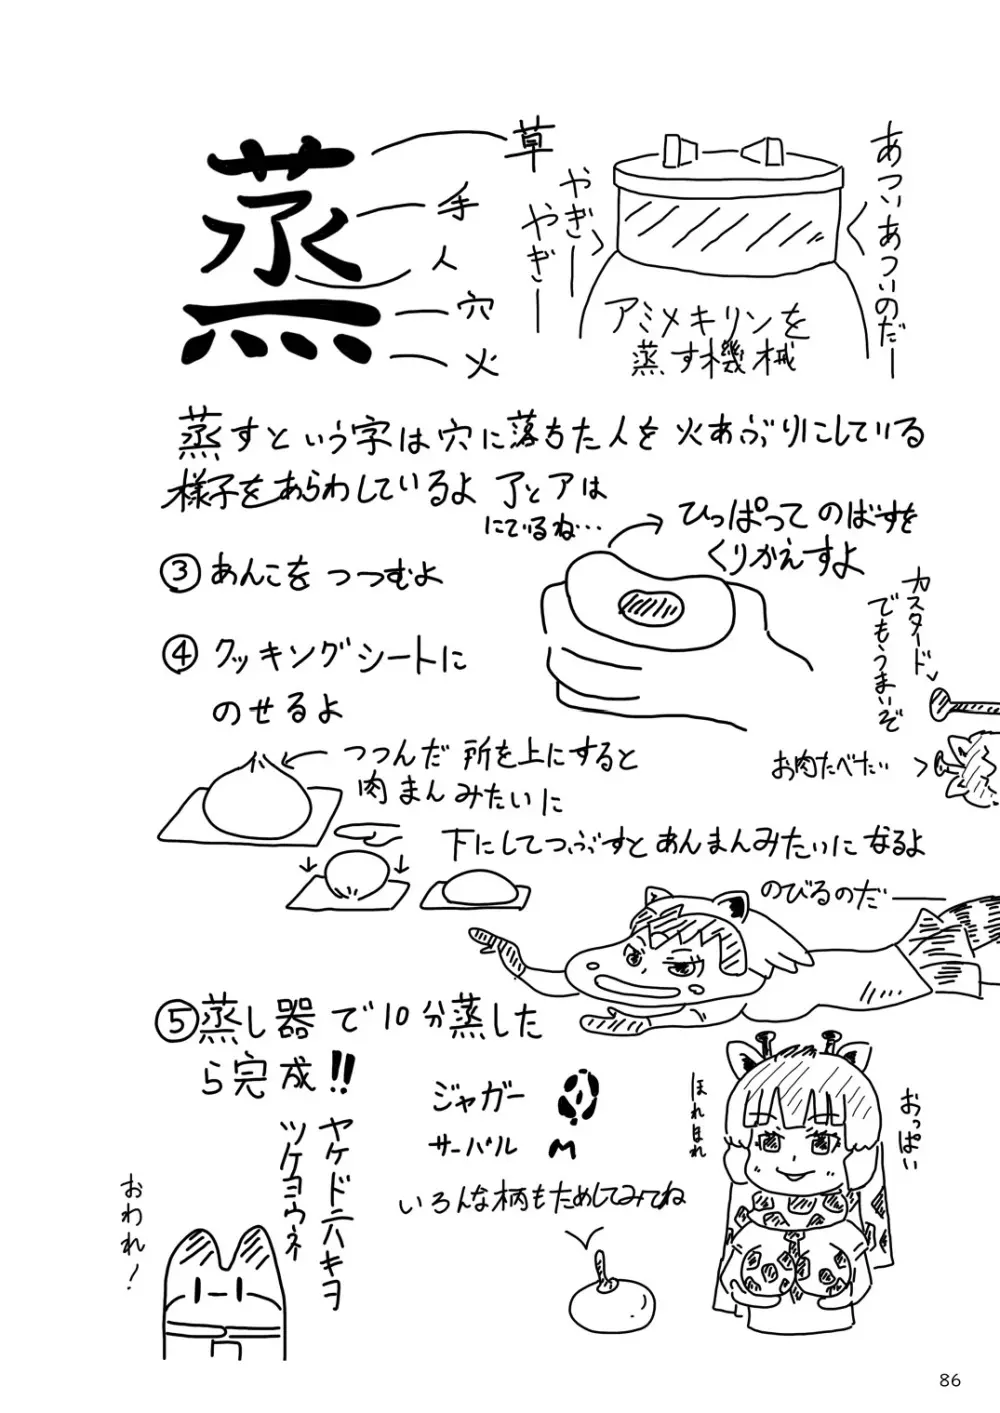 蒸
草
手
人
穴
火
やぎー
やぎー
あついあついのだー
アミメキリンを
蒸す機械
蒸すという字は穴に落ちた人を火あぶりにしている
様子をあらわしているよ
了とアは
にているね…
ひっぱってのばすを
くりかえすよ
③あんこをつつむよ
カスタード
でもうまいぞ
④クッキングシートに
のせるよ
お肉たべたい
つつんだ所を上にすると
肉まんみたいに
下にしてつぶすとあんまんみたいになるよ
のびるのだー
⑤蒸し器で10分蒸した
ら完成!!
ジャガー
サーバル
いろんな柄もためしてみてね
おっぱい
ほれほれ
ヤケドニハキヲ
ツケヨウネ
おわれ!
86